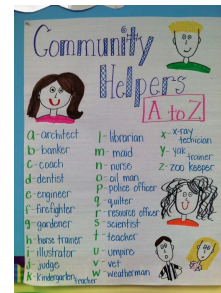 Community
Helpers
A to Z
a-architect
b-banker
c-coach
d-dentist
e-engineer
f-firefighter
g-gardener
h-horse trainer
i-illustrator
j-judge
k-kindergarten teacher
l-librarian
m-maid
n-nurse
o-oil man
p-police officer
q-quilter
r-resource officer
s-scientist
t-teacher
u-umpire
v-vet
w-weatherman
x-x-ray
technician
y-yak
trainer
z-zoo keeper